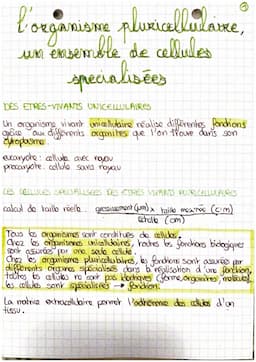 l'organisme pluricellulaire,
un ensemble de cellules
spécialisées
DES ETRES-VIVANTS UNICELLULAIRES
Un organisme vivant unicellulaire réalise différentes fonctions
grâce aux différents organites que l'on trouve dans son
cytoplasme.
eucaryote: cellule avec noyau
procaryote: cellule sans noyau
LES CELLULES SPECIALISEES DES ETRES VIVANTS PLURICELLULAIRES
calcul de taille réelle: x taille mesurée (cm)
échelle (cm)
Tous les organismes sont constitués de cellules.
Chez les organismes unicellulaires, toutes les fonctions biologiques
sont assurées par une seule cellule.
Chez les organismes pluricellulaires, les fonctions sont assurées par
différents organes spécialisés dans la réalisation d'une fonction.
toutes les cellules ne sont pas identiques (forme, organites, molécules)
les cellules sont spécialisées → fonction.
La matrice extracellulaire permet l'adhérence des cellules d'un
tissu.